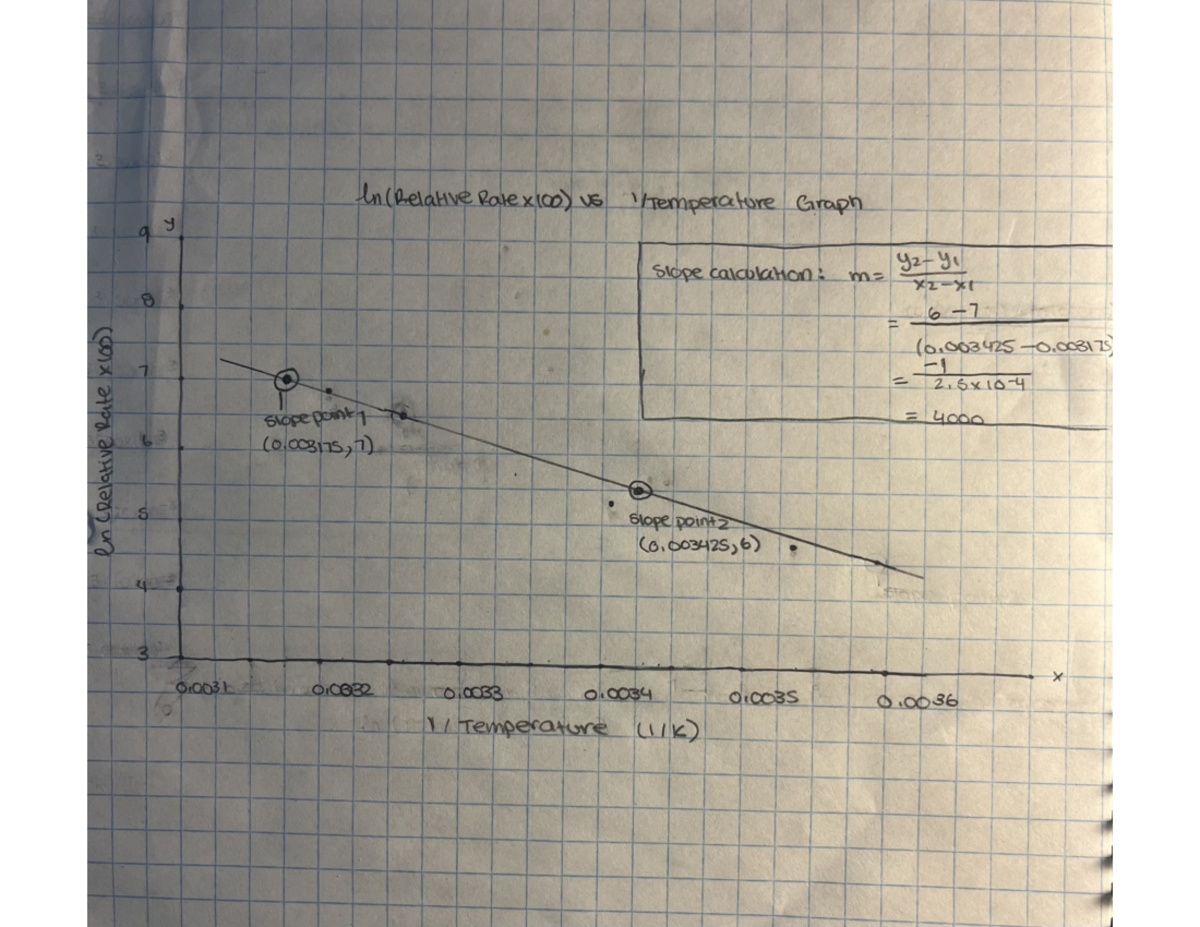 ln(Relative Rate x100) vs 1/Temperature Graph
y
9
8
7
6
5
4
3
ln (Relative Rate x100)
Slope calculation: m= y2-y1
x2-x1
= 6-7
(0.003425-0.003175)
= -1
2.5x10-4
= 4000
slope point 1
(0.003175,7)
slope point 2
(0.003425,6)
0.0031 0.0032 0.0033 0.0034 0.0035 0.0036
x
1/Temperature (1/K)